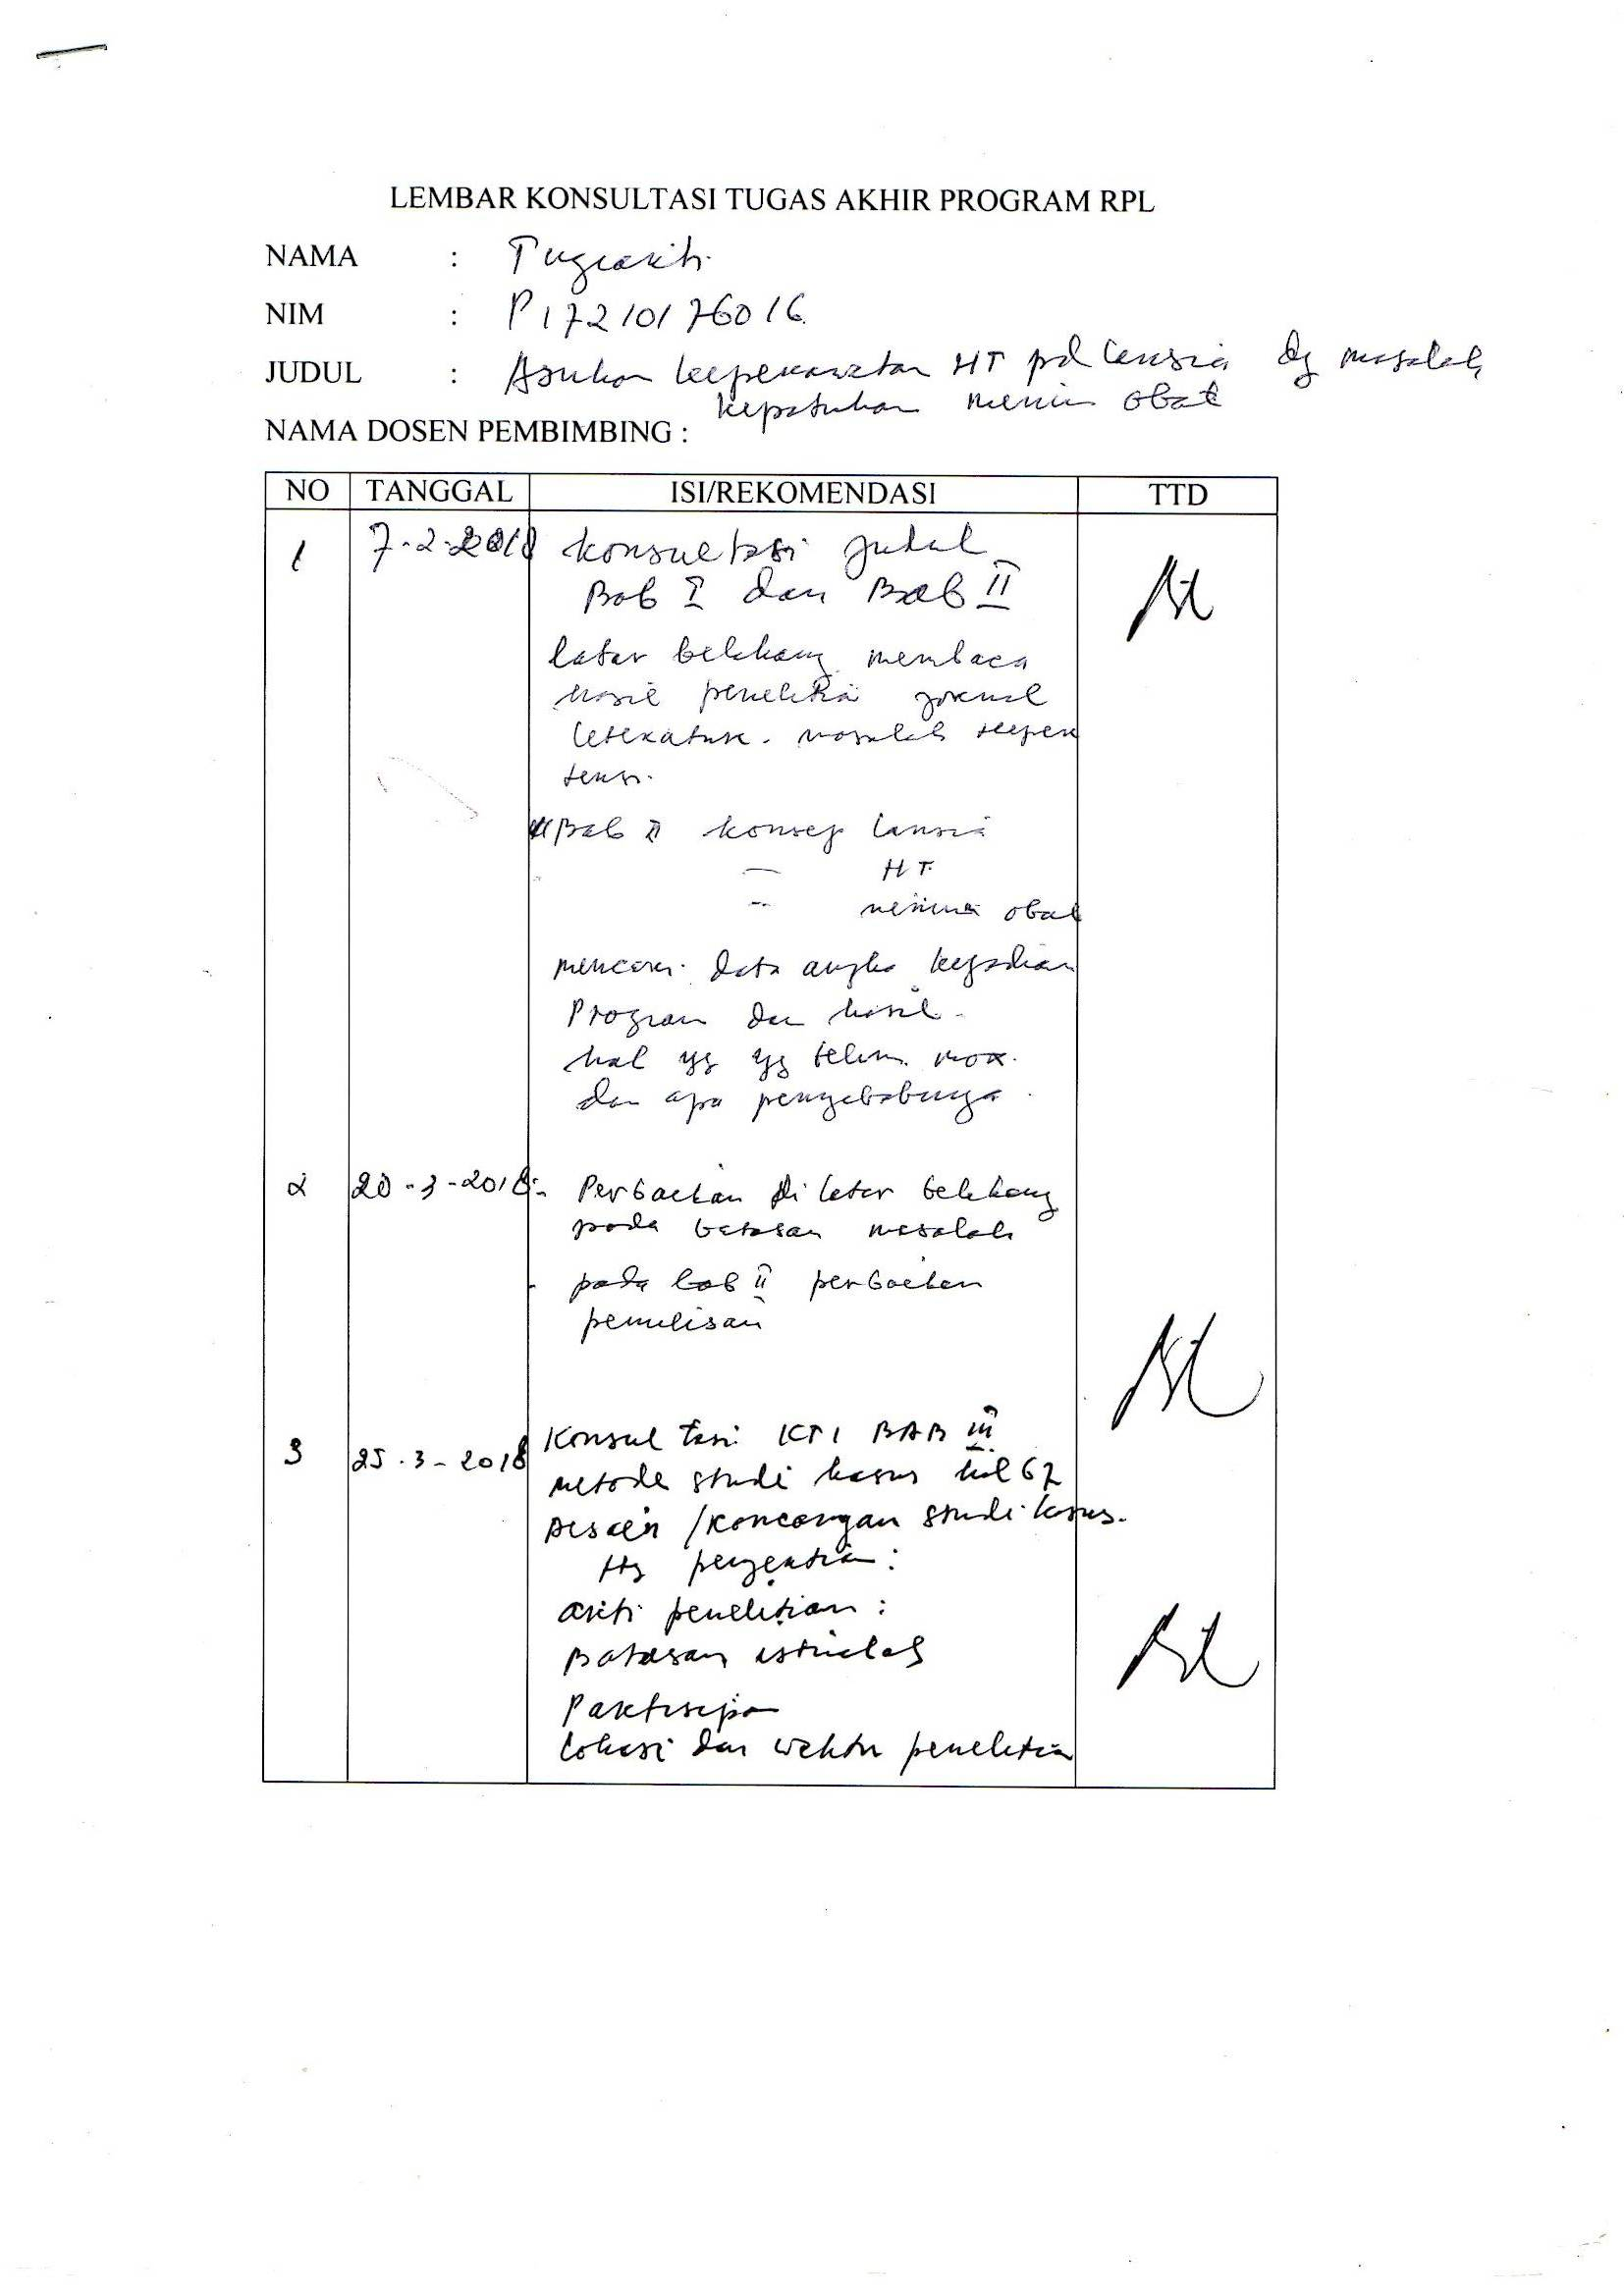 LEMBAR KONSULTASI TUGAS AKHIR PROGRAM RPL
NAMA : Tugiarti
NIM : P17210176016
JUDUL : Asuhan keperawatan HT pd lansia dg masalah
kepatuhan minum obat
NAMA DOSEN PEMBIMBING :
NO TANGGAL ISI/REKOMENDASI TTD
1 7-2-2018 Konsultasi judul
Bab I dan Bab II
latar belakang membaca
hasil penelitian jurnal
literatur. masalah hiper
tensi.
Bab II konsep lansia
— HT
— minum obat
mencari data angka kejadian
Program dan hasil
hal yg yg belum max.
dan apa penyebabnya.
2 20-3-2018 - Perbaikan di latar belakang
pada batasan masalah
- pada bab II perbaikan
penulisan
3 25-3-2018 Konsultasi KTI BAB III
metode studi kasus hal 67
Desain /Rancangan studi kasus.
penelitian :
Batasan istilah
Partisipan
lokasi dan waktu penelitian